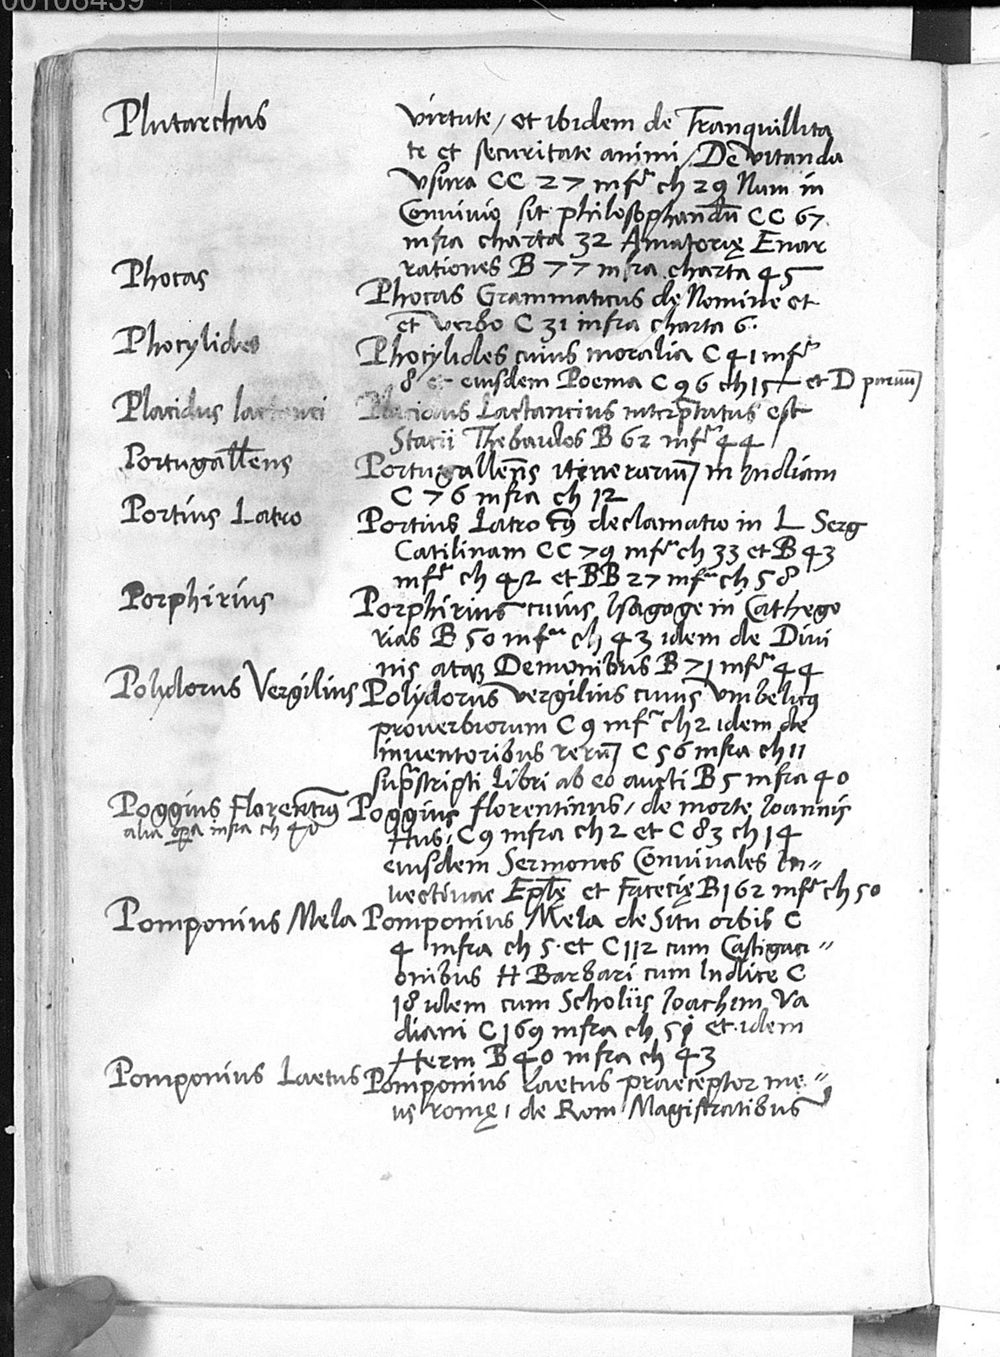 00106439
Plutarchus virtute, et ibidem de Tranquillita
te et securitate animi, De vitanda
Vsura CC 27 infr ch 29 Num in
Convivio sit philosophandū CC 67
infra charta 32 Amatorię Enar
rationes B 77 infra charta 45
Phocas Phocas Grammaticus de Nomine et
et verbo C 31 infra charta 6.
Phocylides Phocylides cuius moralia C 41 infr
8 et eiusdem Poema C 96 ch 15 et D paruū
Placidus lactanci Placidus Lactancius interptatus est
Stacii Thebaidos B 62 infr 44
Portugallens Portugallens itinerariū in Indiam
C 76 infra ch 12
Portius Latro Portius Latro declamatio in L Serg
Catilinam CC 79 infr ch 33 et B 43
infr ch 42 et BB 27 infr ch 58
Porphirius Porphirius cuius Isagoge in Cathego
rias B 50 infra ch 43 idem de Divi
nis atq Demonibus B 71 infr 44
Polydorus Vergilius Polydorus Vergilius cuius
proverbiorum C 9 infr ch 2 idem de
inventoribus rerū C 56 infra ch 11
supscripti libri ab eo aucti B 5 infra 40
Poggius Florentinus Poggius florentinus, de morte Ioannis
alia opa infra ch 40 Hus, C 9 infra ch 2 et C 83 ch 14
eiusdem Sermones Convivales In„
vectivae Eplę et facecię B 162 infr ch 50
Pomponius Mela Pomponius Mela de Situ orbis C
4 infra ch 5. et C 112 cum Castigaci„
onibus H Barbari cum Indice C
18 idem cum Scholiis Ioachim Va
diani C 169 infra ch 51 et idem
Herm B 40 infra ch 43
Pomponius Laetus Pomponius Laetus praeceptor me„
us romę, de Rom Magistratibus